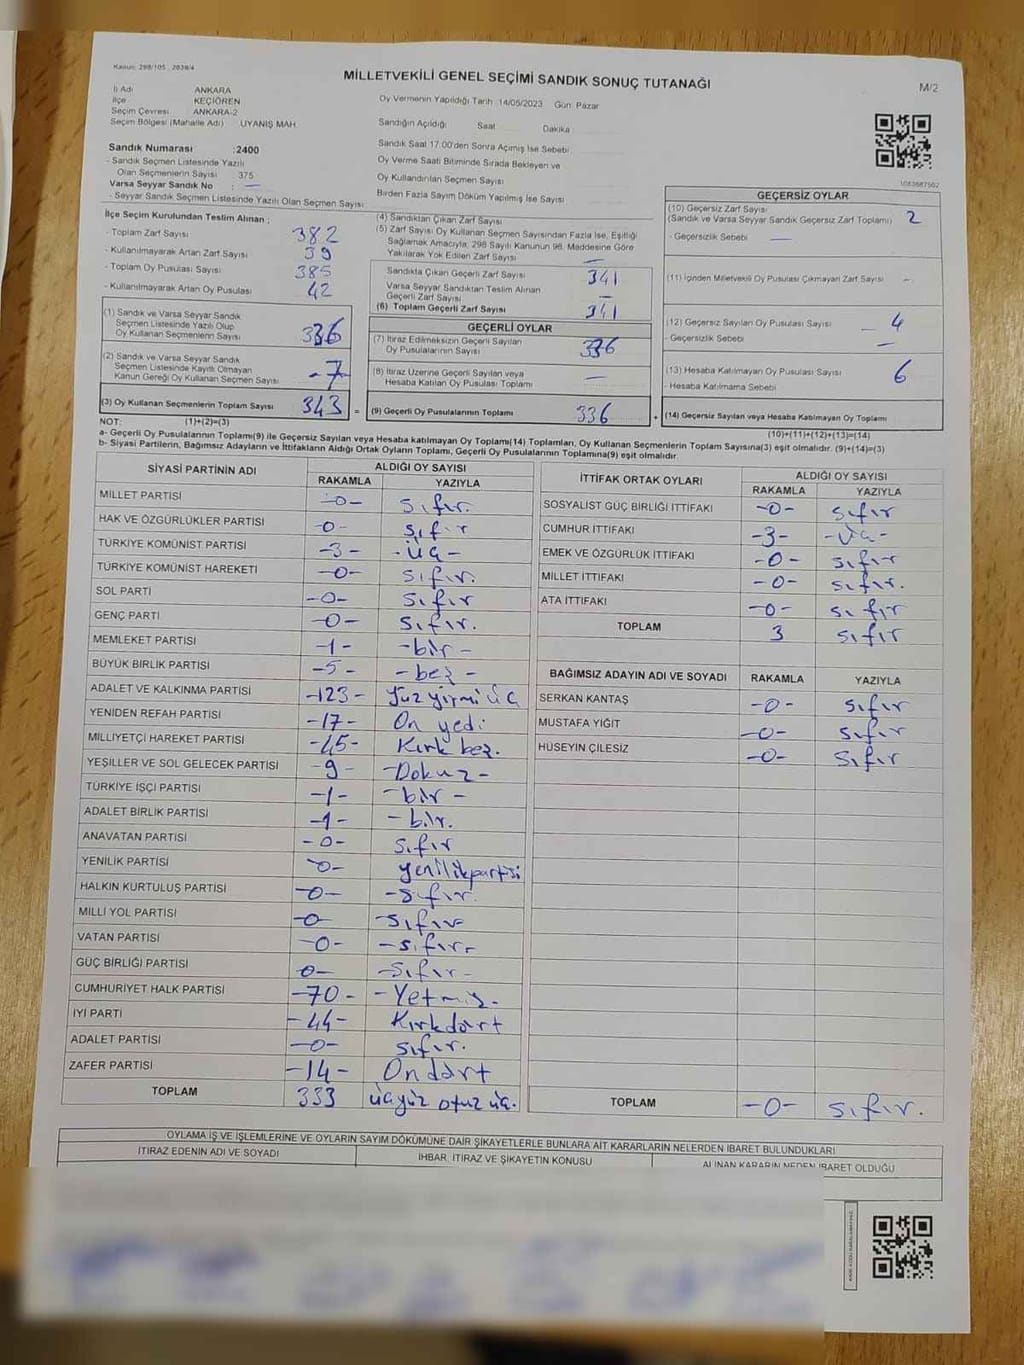 Kanun: 298/105 , 2839/4
MİLLETVEKİLİ GENEL SEÇİMİ SANDIK SONUÇ TUTANAĞI
M/2
İl Adı ANKARA
İlçe KEÇİÖREN
Seçim Çevresi ANKARA-2
Seçim Bölgesi (Mahalle Adı) UYANIŞ MAH.
Oy Vermenin Yapıldığı Tarih :14/05/2023 Gün: Pazar
Sandığın Açıldığı Saat Dakika
Sandık Saat 17.00'den Sonra Açımış İse Sebebi
Oy Verme Saati Bitiminde Sırada Bekleyen ve
Oy Kullandırılan Seçmen Sayısı
Birden Fazla Sayım Döküm Yapılmış İse Sayısı
Sandık Numarası :2400
- Sandık Seçmen Listesinde Yazılı
Olan Seçmenlerin Sayısı : 375
Varsa Seyyar Sandık No : —
- Seyyar Sandık Seçmen Listesinde Yazılı Olan Seçmen Sayısı
İlçe Seçim Kurulundan Teslim Alınan ;
- Toplam Zarf Sayısı 382
- Kullanılmayarak Artan Zarf Sayısı 39
- Toplam Oy Pusulası Sayısı 385
- Kullanılmayarak Artan Oy Pusulası 42
(1) Sandık ve Varsa Seyyar Sandık
Seçmen Listesinde Yazılı Olup
Oy Kullanan Seçmenlerin Sayısı 336
(2) Sandık ve Varsa Seyyar Sandık
Seçmen Listesinde Kayıtlı Olmayan
Kanun Gereği Oy Kullanan Seçmen Sayısı -7
(3) Oy Kullanan Seçmenlerin Toplam Sayısı 343
(4) Sandıktan Çıkan Zarf Sayısı
(5) Zarf Sayısı Oy Kullanan Seçmen Sayısından Fazla İse, Eşitliği
Sağlamak Amacıyla; 298 Sayılı Kanunun 98. Maddesine Göre
Yakılarak Yok Edilen Zarf Sayısı —
Sandıkta Çıkan Geçerli Zarf Sayısı 341
Varsa Seyyar Sandıktan Teslim Alınan
Geçerli Zarf Sayısı —
(6) Toplam Geçerli Zarf Sayısı 341
GEÇERLİ OYLAR
(7) İtiraz Edilmeksizin Geçerli Sayılan
Oy Pusulalarının Sayısı 336
(8) İtiraz Üzerine Geçerli Sayılan veya
Hesaba Katılan Oy Pusulası Toplamı —
= (9) Geçerli Oy Pusulalarının Toplamı 336 +
1083687502
GEÇERSİZ OYLAR
(10) Geçersiz Zarf Sayısı
(Sandık ve Varsa Seyyar Sandık Geçersiz Zarf Toplamı) 2
- Geçersizlik Sebebi —
(11) İçinden Milletvekili Oy Pusulası Çıkmayan Zarf Sayısı -
(12) Geçersiz Sayılan Oy Pusulası Sayısı 4
- Geçersizlik Sebebi —
(13) Hesaba Katılmayan Oy Pusulası Sayısı 6
- Hesaba Katılmama Sebebi
(14) Geçersiz Sayılan veya Hesaba Katılmayan Oy Toplamı
NOT: (1)+(2)=(3)
(10)+(11)+(12)+(13)=(14)
a- Geçerli Oy Pusulalarının Toplamı(9) ile Geçersiz Sayılan veya Hesaba katılmayan Oy Toplam(14) Toplamları, Oy Kullanan Seçmenlerin Toplam Sayısına(3) eşit olmalıdır. (9)+(14)=(3)
b- Siyasi Partilerin, Bağımsız Adayların ve İttifakların Aldığı Ortak Oyların Toplamı, Geçerli Oy Pusulalarının Toplamına(9) eşit olmalıdır.
SİYASİ PARTİNİN ADI ALDIĞI OY SAYISI
RAKAMLA YAZIYLA
MİLLET PARTİSİ -0- sıfır.
HAK VE ÖZGÜRLÜKLER PARTİSİ -0- sıfır
TÜRKİYE KOMÜNİST PARTİSİ -3- -üç-
TÜRKİYE KOMÜNİST HAREKETİ -0- sıfır.
SOL PARTİ -0- sıfır
GENÇ PARTİ -0- sıfır.
MEMLEKET PARTİSİ -1- -bir-
BÜYÜK BİRLİK PARTİSİ -5- -beş-
ADALET VE KALKINMA PARTİSİ -123- Yüz yirmi üç
YENİDEN REFAH PARTİSİ -17- On yedi
MİLLİYETÇİ HAREKET PARTİSİ -45- Kırk beş.
YEŞİLLER VE SOL GELECEK PARTİSİ -9- -Dokuz-
TÜRKİYE İŞÇİ PARTİSİ -1- -bir-
ADALET BİRLİK PARTİSİ -1- -bir.
ANAVATAN PARTİSİ -0- sıfır
YENİLİK PARTİSİ -0- yenilikpartisi
HALKIN KURTULUŞ PARTİSİ -0- -sıfır.
MİLLİ YOL PARTİSİ -0- -sıfır
VATAN PARTİSİ -0- -sıfır-
GÜÇ BİRLİĞİ PARTİSİ -0- -sıfır-
CUMHURİYET HALK PARTİSİ -70- -Yetmiş-
İYİ PARTİ -44- Kırkdört
ADALET PARTİSİ -0- sıfır.
ZAFER PARTİSİ -14- Ondört
TOPLAM 333 üçyüz otuz üç.
İTTİFAK ORTAK OYLARI ALDIĞI OY SAYISI
RAKAMLA YAZIYLA
SOSYALİST GÜÇ BİRLİĞİ İTTİFAKI -0- sıfır
CUMHUR İTTİFAKI -3- -üç-
EMEK VE ÖZGÜRLÜK İTTİFAKI -0- sıfır
MİLLET İTTİFAKI -0- sıfır.
ATA İTTİFAKI -0- sıfır
TOPLAM 3 sıfır
BAĞIMSIZ ADAYIN ADI VE SOYADI RAKAMLA YAZIYLA
SERKAN KANTAŞ -0- sıfır
MUSTAFA YİĞİT -0- sıfır
HÜSEYİN ÇİLESİZ -0- sıfır
TOPLAM -0- sıfır.
OYLAMA İŞ VE İŞLEMLERİNE VE OYLARIN SAYIM DÖKÜMÜNE DAİR ŞİKAYETLERLE BUNLARA AİT KARARLARIN NELERDEN İBARET BULUNDUKLARI
İTİRAZ EDENİN ADI VE SOYADI İHBAR, İTİRAZ VE ŞİKAYETİN KONUSU ALINAN KARARIN NEDEN İBARET OLDUĞU